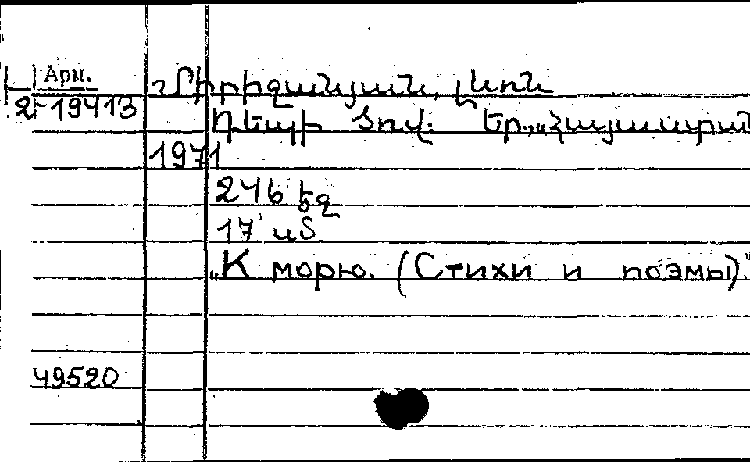 Арм.
2-19413
Միրիջանյան, Լևոն
Դեպի ծով. Եր., „Հայաստան
1971
246 էջ
17 սմ
„К морю. (Стихи и поэмы)."
49520